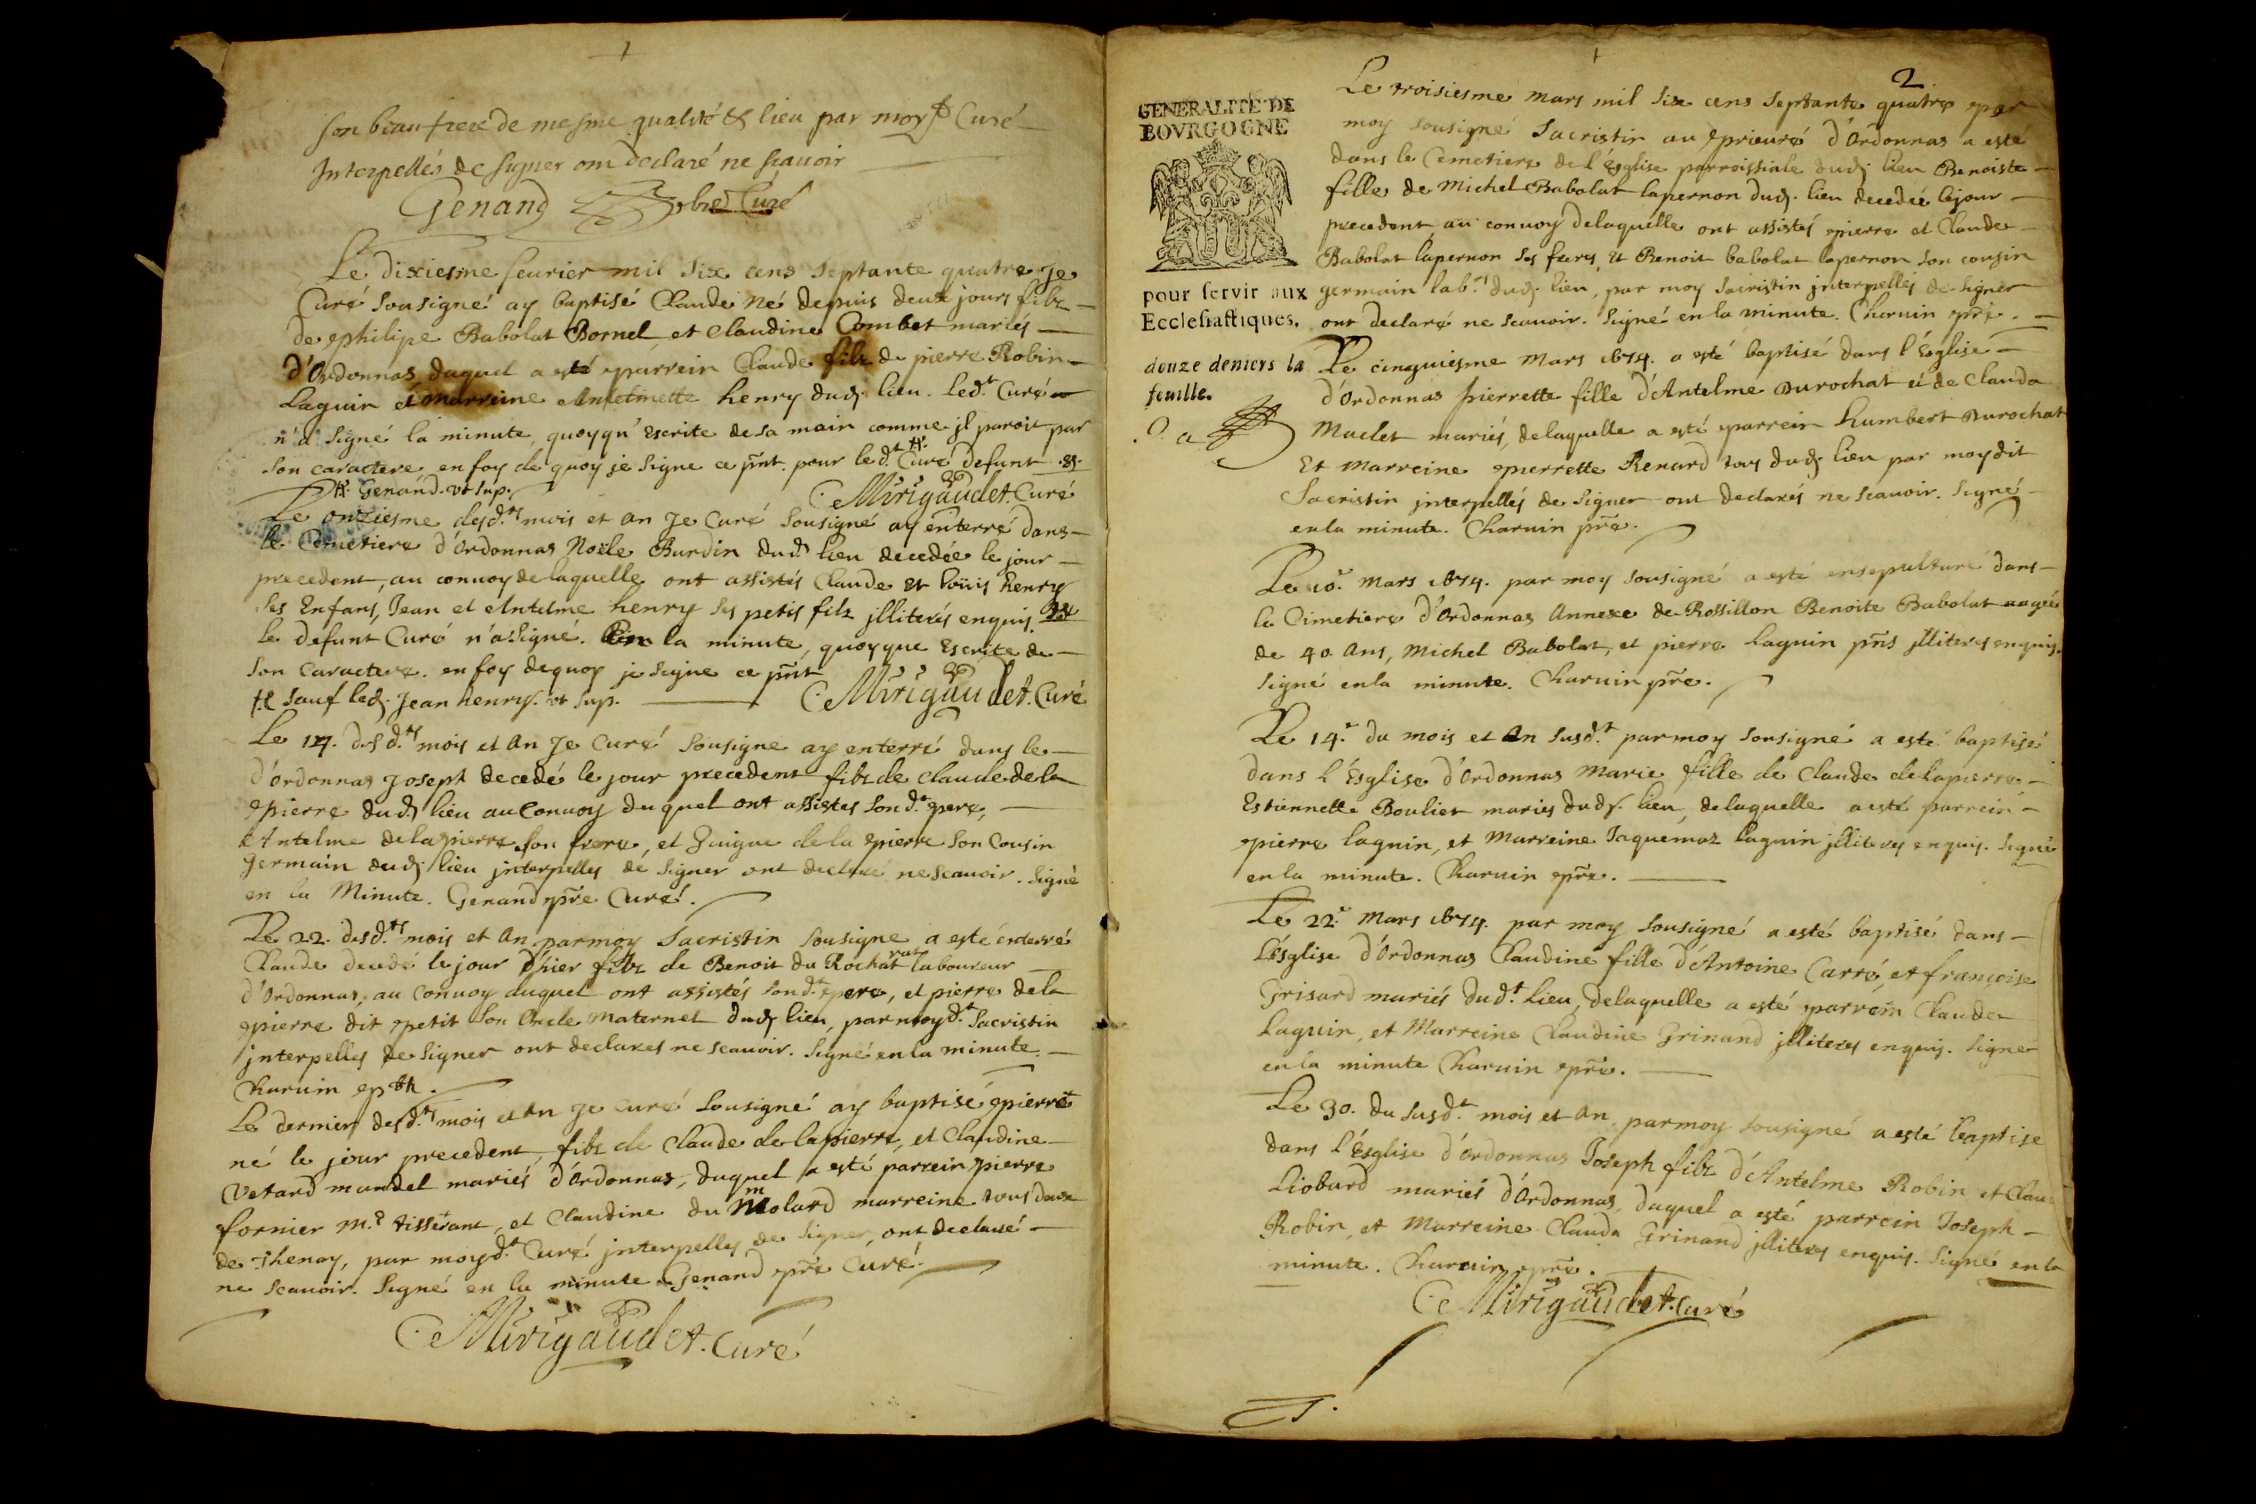 son beau frere de mesme qualité & lieu par moy d. Curé
Interpellés de signer ont declaré ne scauoir
Genand pbre Curé
Le dixiesme feurier mil six cens septante quatre je
Curé sousigné ay baptisé Claude né depuis deux jours filz
de philipe Babolat Bornel et Claudine Combet mariés
d'Ordonnas duquel a esté parrein Claude filz de pierre Robin
Laguin et marreine Antelmette henry dud. lieu. Led.t Curé
n'a signé la minute, quoyqu'Escrite de sa main comme jl paroit par
son caractere, en foy de quoy je signe ce pnt. pour led.t Curé defunt
Genand. vt sup. Mirigaudet. Curé
Le onziesme desd.ts mois et an Je Curé sousigné ay enterré dans
le Cemetiere d'Ordonnas Noële Burdin dud. lieu decedée le jour
precedent, au conuoy de laquelle ont assistés Claude et loüis henry
ses Enfans, Jean et Antelme henry ses petis filz jlliterés enquis.
le defunt Curé n'a signé. la minute, quoyque Escrite de
son caractere. en foy dequoy je signe ce pnt
sauf led. Jean henry. vt sup. Mirigaudet. Curé
Le 17. desd.ts mois et an Je Curé sousigne ay enterré dans le
d'ordonnas Joseph decedé le jour precedent filz de claude de la
pierre dud. lieu au Conuoy duquel ont assistes son d.t pere,
Antelme de la pierre son frere, et Guigue de la pierre son Cousin
germain dud. lieu jnterpelles de signer ont declaré ne scauoir. signé
en la Minute. Genand pre Curé.
Le 22. desd.ts mois et an par moy Sacristin sousigne a esté enterré
Claude decedé le jour d'hier filz de Benoit du Rochat laboureur
d'Ordonnas, au conuoy duquel ont assistés son d.t pere, et pierre de la
pierre dit petit son Oncle maternel dud. lieu, par moy d.t Sacristin
jnterpelles de signer ont declares ne scauoir. signé en la minute.
Charuin
Le dernier desd.ts mois et an Je Curé sousigné ay baptisé pierre
né le jour precedent filz de Claude de lapierre, et Claudine
Vetard mandel mariés d'Ordonnas, duquel a esté parrein pierre
fornier m.e tisserant, et Claudine du Molard marreine tous deux
de Thenay, par moy d.t Curé jnterpelles de signer, ont declaré
ne scauoir. signé en la minute Genand pre Curé.
Mirigaudet. Curé
2
GENERALITE DE
BOVRGOGNE
pour seruir aux
Ecclesiastiques.
douze deniers la
feuille.
Le troisiesme mars mil six cens septante quatre par
moy sousigné Sacristin au prieuré d'Ordonnas a esté
dans le Cemetiere de l'Esglise parroissiale dud. lieu Benoiste
fille de Michel Babolat lapernon dud. lieu decedée le jour
precedent, au conuoy de laquelle ont assistés pierre et Claude
Babolat lapernon ses freres, et Benoit babolat lapernon son cousin
germain lab.rs dud. lieu, par moy Sacristin jnterpellés de signer
ont declaré ne scauoir. Signé en la minute. Charuin pre.
Le cinquiesme mars 1674. a esté baptisé dans l'Esglise
d'Ordonnas pierrette fille d'Antelme Durochat et de Clauda
Maclet mariés, de laquelle a esté parrein humbert Durochat
Et marreine pierrette Renard tous dud. lieu par moy dit
Sacristin jnterpellés de signer ont declarés ne scauoir. Signé
en la minute. Charuin pre.
Le 10.e mars 1674. par moy sousigné a esté ensepulturé dans
le Cimetiere d'Ordonnas Annexe de Rossillon Benoite Babolat aagée
de 40 ans, Michel Babolat, et pierre laguin pns jlliteres enquis.
signé en la minute. Charuin pre.
Le 14.e du mois et an susd.t par moy sousigné a esté baptisé
dans l'Esglise d'Ordonnas Marie fille de Claude de lapierre
Estiennette Boulier mariés dud. lieu, de laquelle a esté parrein
pierre laguin, et Marreine Jaquemaz laguin jlliteres enquis. signé
en la minute. Charuin pre.
Le 22.e Mars 1674. par moy sousigné a esté baptisé dans
l'Esglise d'Ordonnas Claudine fille d'Antoine Carré et françoise
Grisard mariés dud.t lieu, de laquelle a esté parrein Claude
laguin, et Marreine Claudine Grinand jlliteres enquis. signé
en la minute Charuin pre.
Le 30. du susd.t mois et an, par moy sousigné a esté baptise
dans l'Esglise d'Ordonnas Joseph filz d'Antelme Robin et Clau
Liobard mariés d'Ordonnas, duquel a esté parrein Joseph
Robin, et Marreine Clauda Grinand jlliteres enquis. signé en la
minute. Charuin pre.
Mirigaudet. Curé